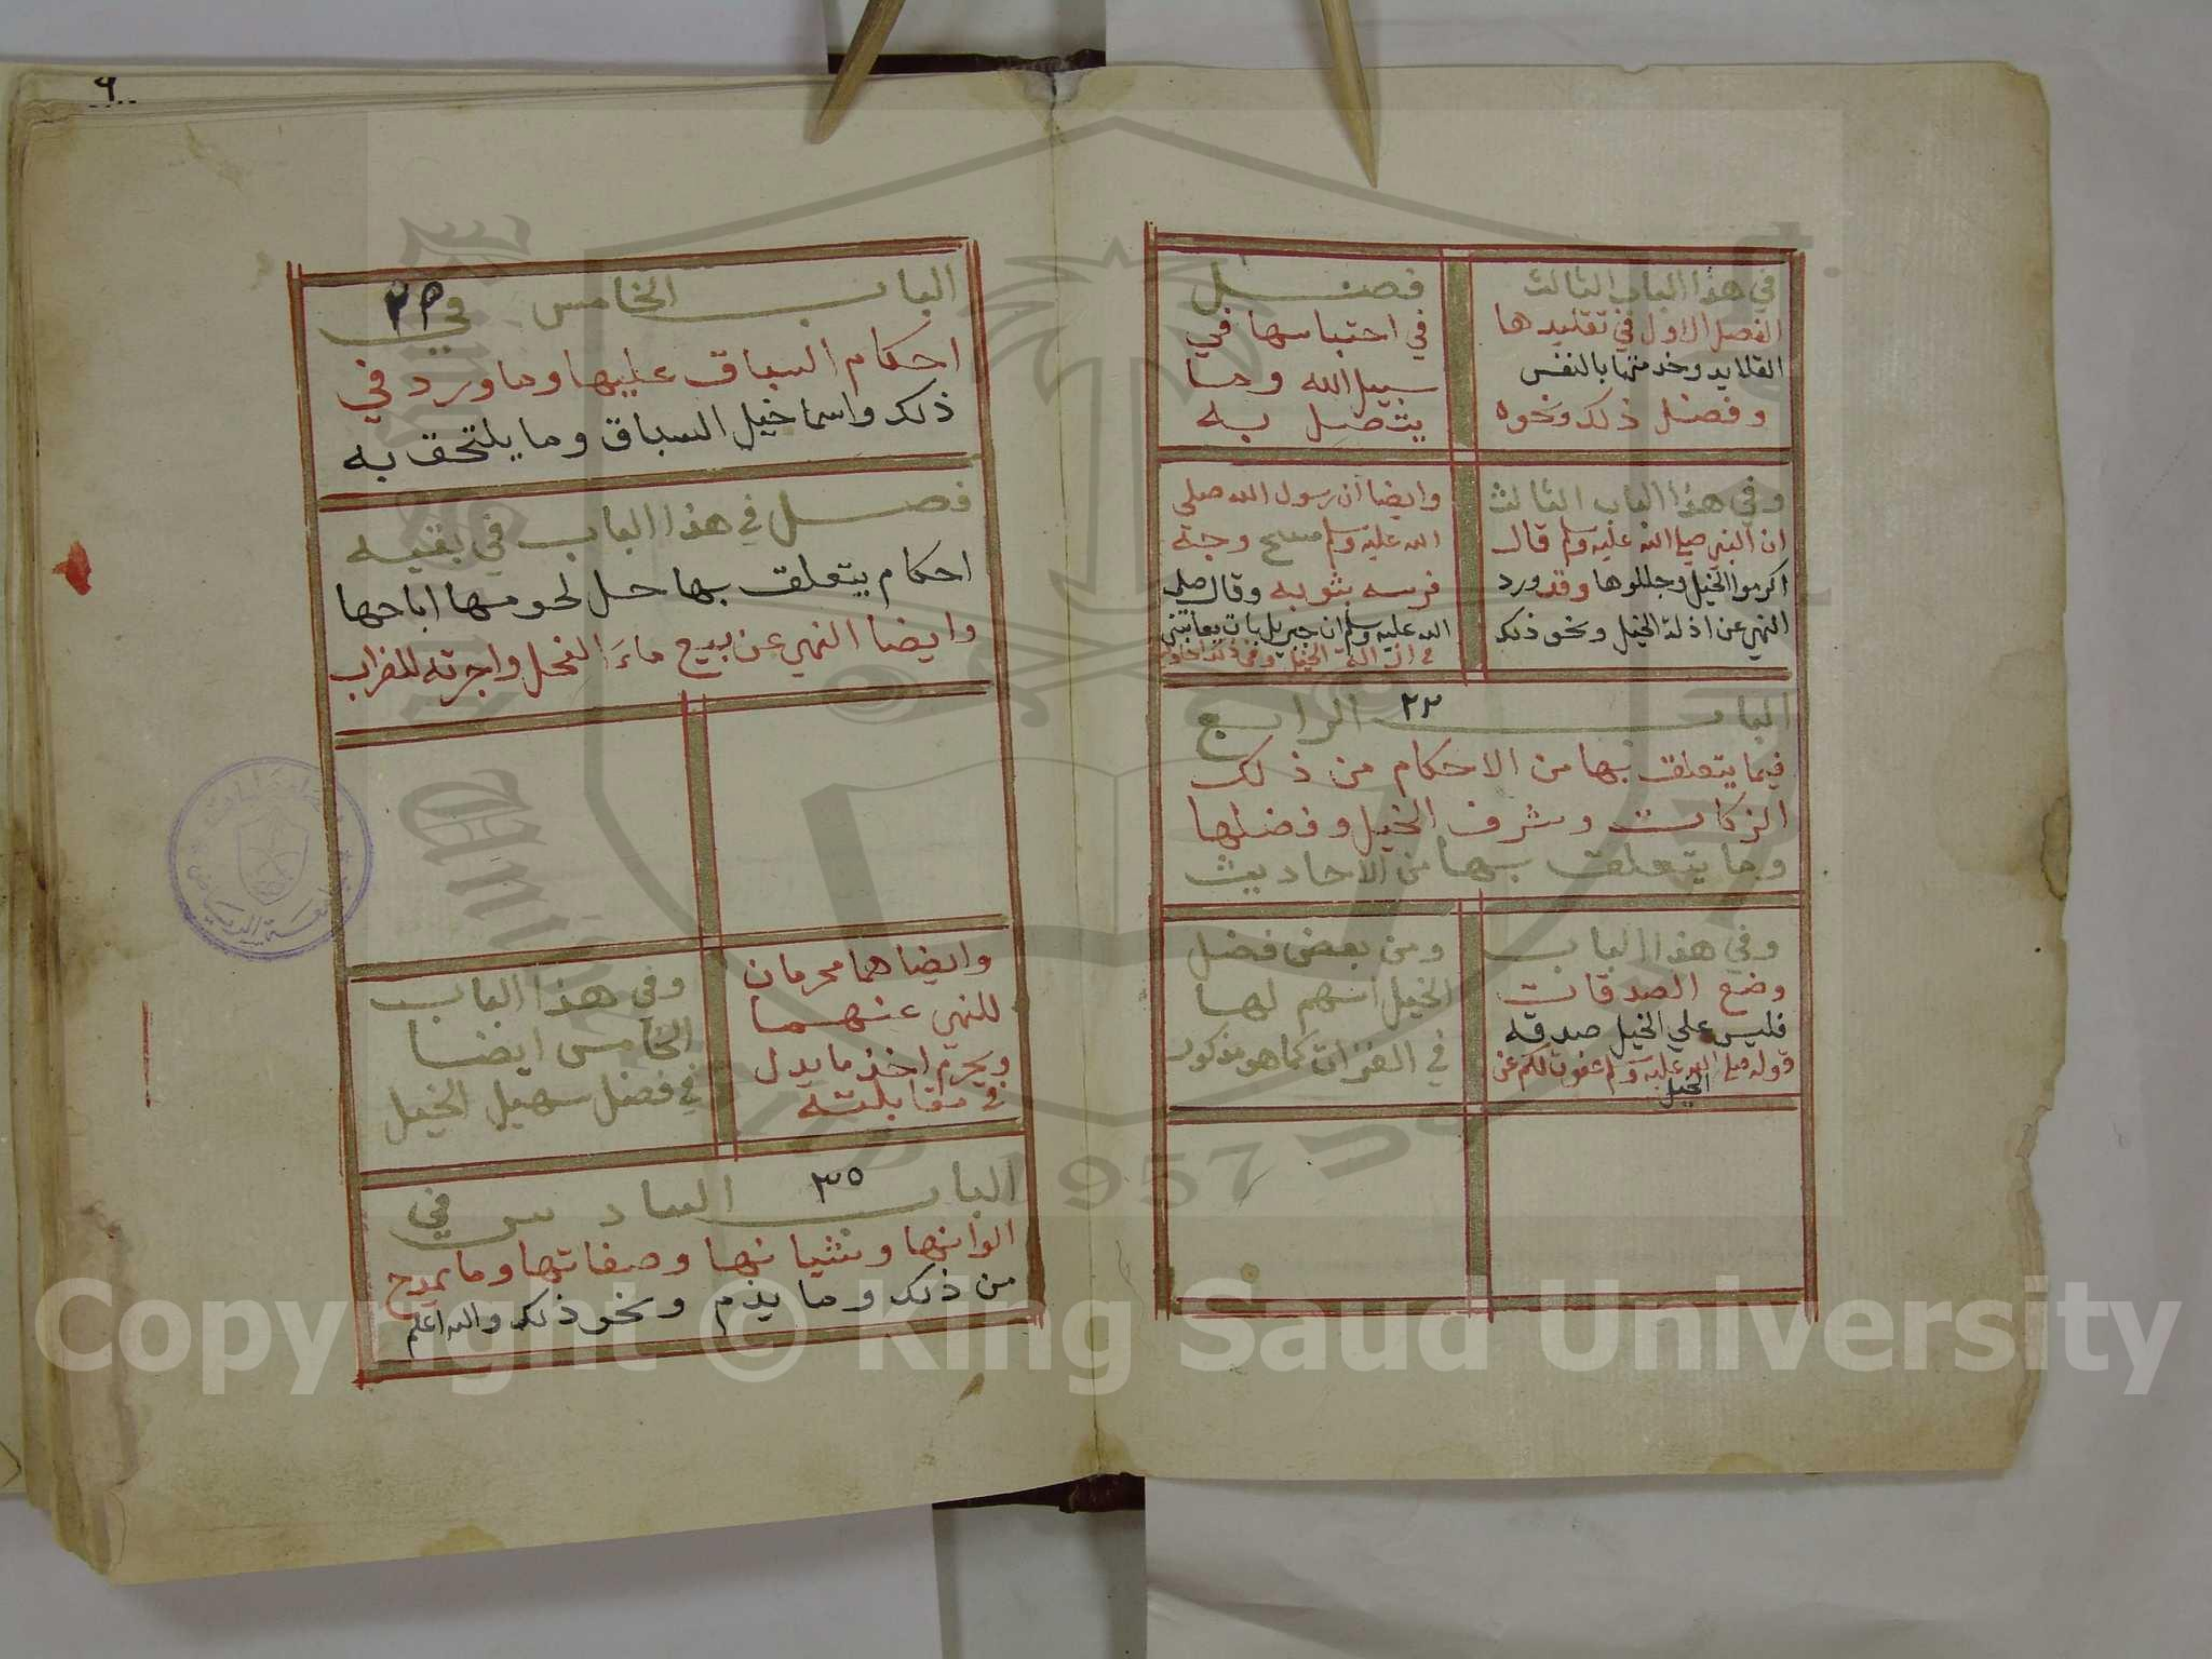 في هذا الباب الثالث
الفصل الاول في تقليدها
القلايد وخدمتها بالنفس
وفضل ذلك ونحوه
فصل
في احتباسها في
سبيل الله وما
يتصل به
وفي هذا الباب الثالث
ان النبي صلي الله عليه وسلم قال
اكرموا الخيل وجللوها وقد ورد
النهي عن اذلة الخيل ونحو ذلك
وايضا ان رسول الله صلي
الله عليه وسلم مسح وجه
فرسه بثوبه وقال صلي
الله عليه وسلم ان جبريل بات يعاتبني
في اذالة الخيل وفي ذلك
٢٣
الباب الرابع
فيما يتعلق بها من الاحكام من ذلك
الزكات وشرف الخيل وفضلها
وما يتعلق بها من الاحاديث
وفي هذا الباب
وضع الصدقات
فليس علي الخيل صدقه
قوله صلي الله عليه وسلم عفوت لكم عن
الخيل
ومن بعض فضل
الخيل اسهم لها
في الغزات كما هو مذكور
٩
الباب الخامس في
احكام السباق عليها وما ورد في
ذلك واسما خيل السباق وما يلتحق به
فصل في هذا الباب في بقيه
احكام يتعلق بها حل لحومها اباحها
وايضا النهي عن بيع ماء الفحل واجرته للضراب
وايضا هما محرمان
للنهي عنهما
ويحرم اخذ ما بدل
في مقابلته
وفي هذا الباب
الخامس ايضا
في فضل سهيل الخيل
٣٥
الباب السادس في
الوانها وشياتها وصفاتها وما يمدح
من ذلك وما يذم ونحو ذلك والله اعلم
1957
Copyright © King Saud University